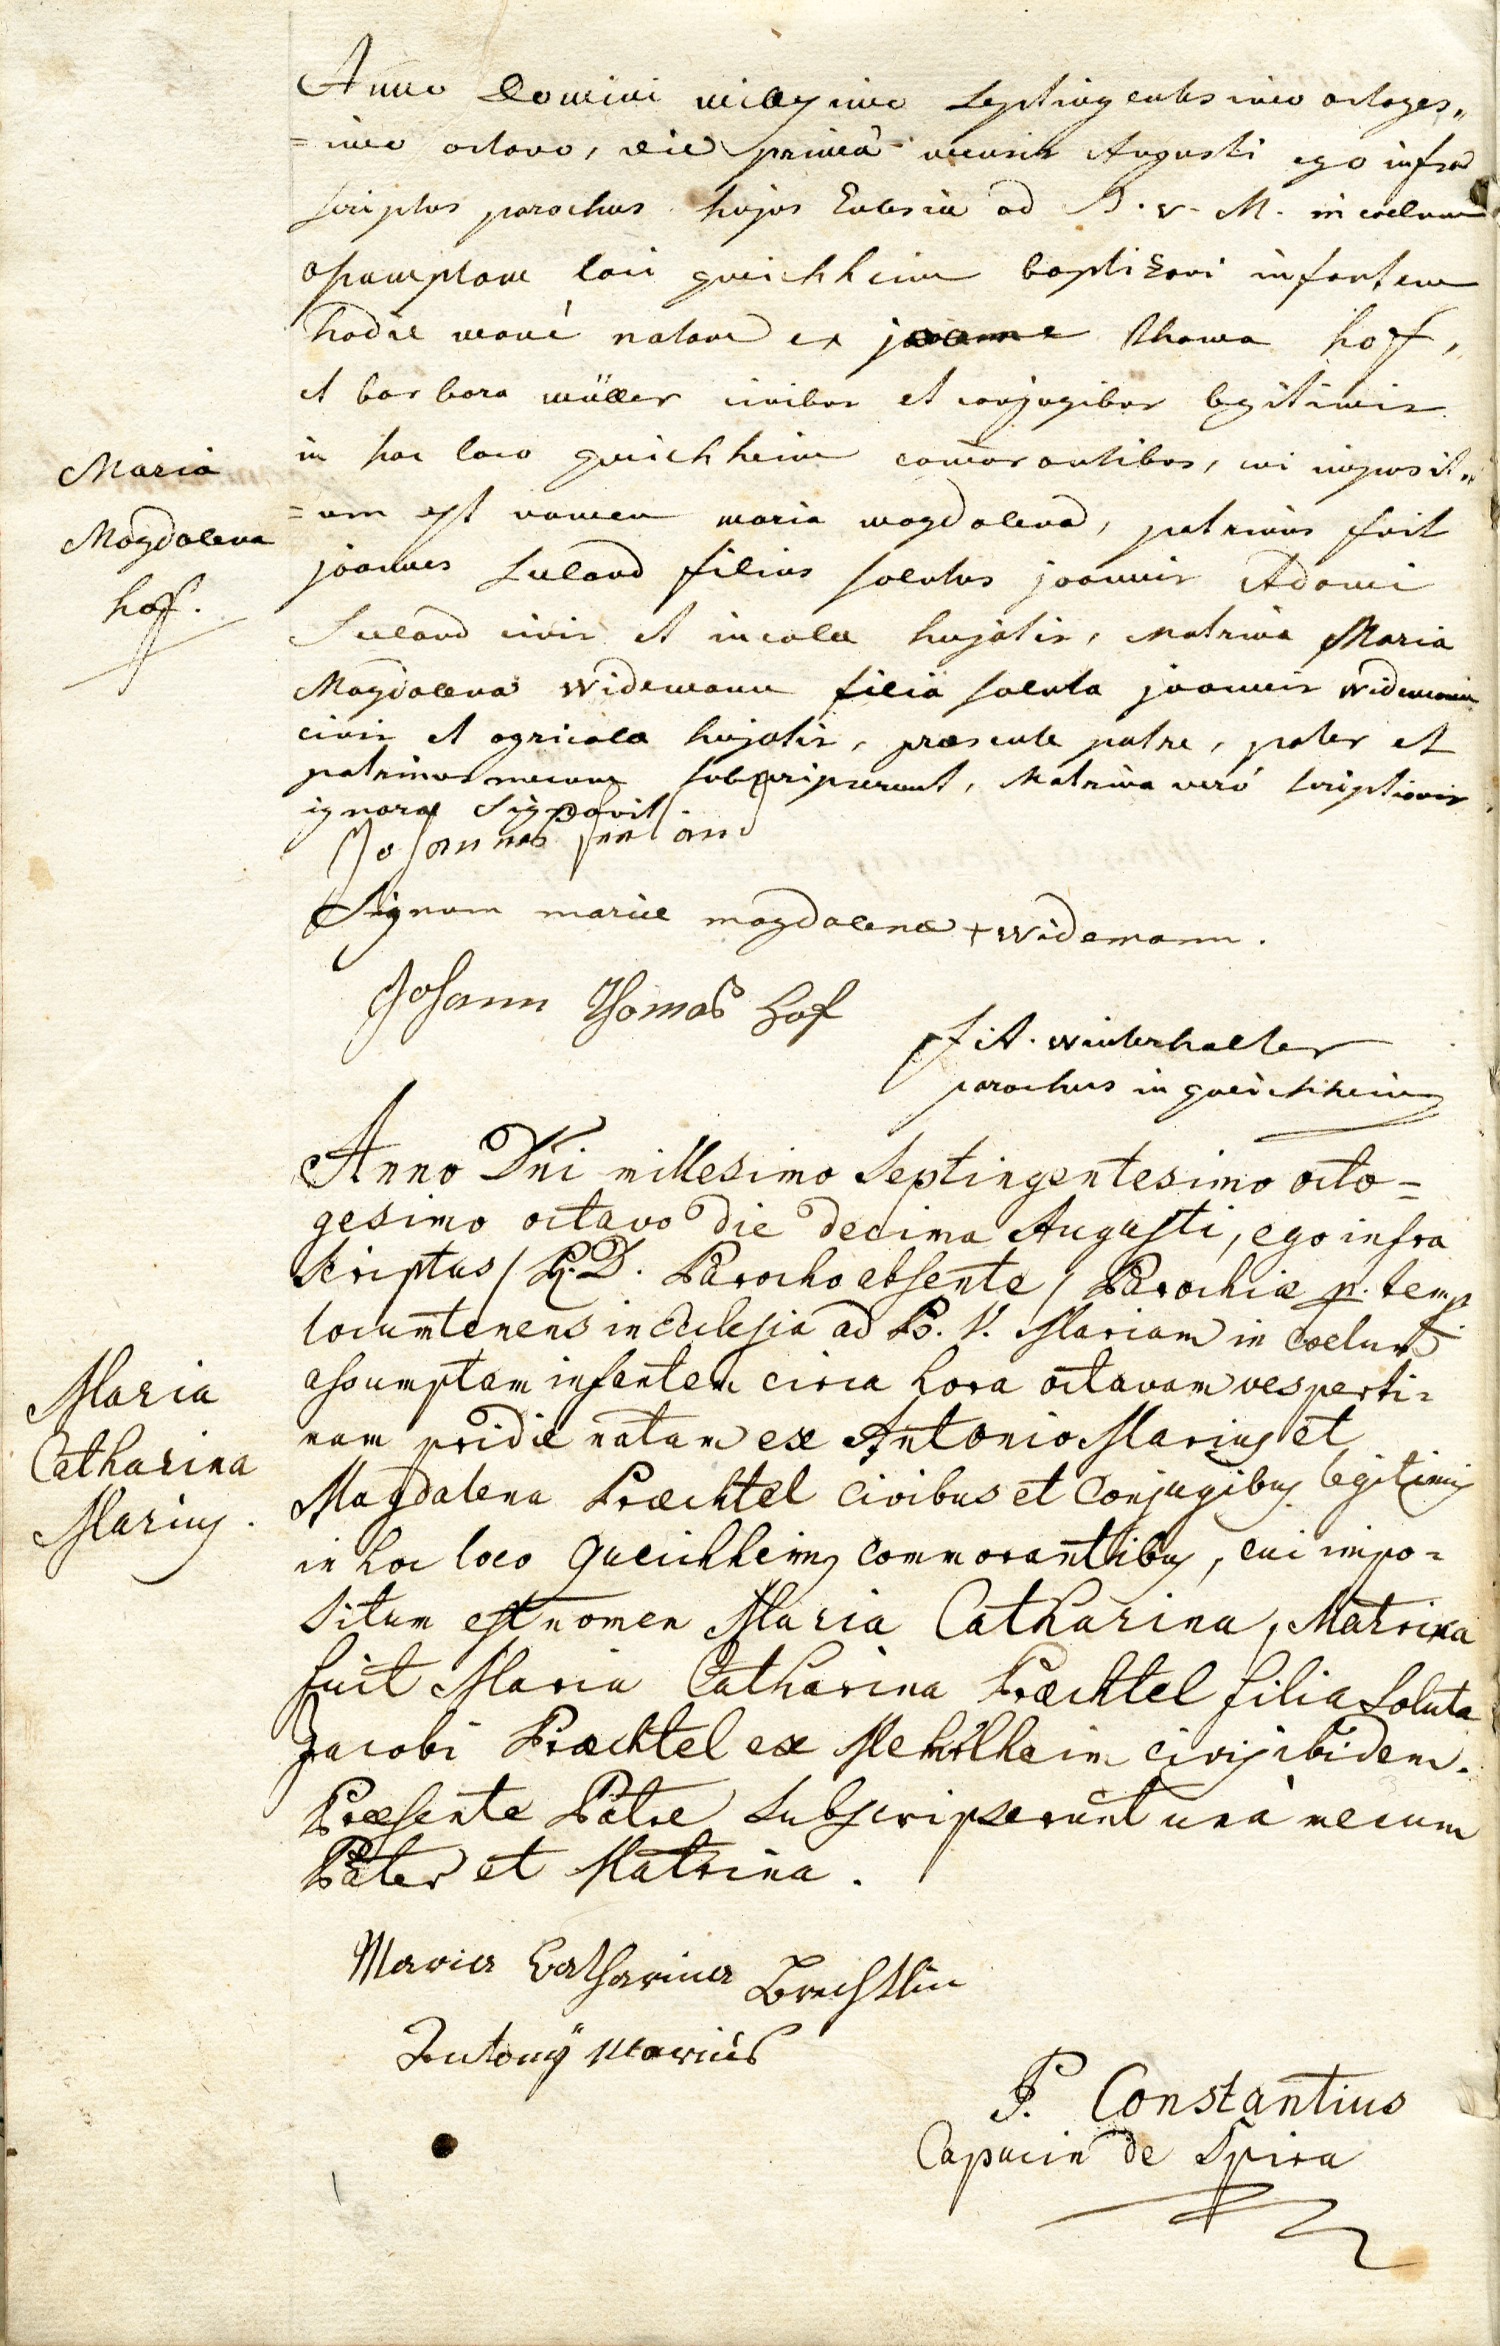 Anno Domini millesimo septingentesimo octoges„
=imo octavo, die primâ mensis Augusti ego infra
scriptus parochus hujus Eclesiæ ad B. v. M. in coelum
assumptam loci queichheim baptizavi infantem
hodie mané natam ex joanne thoma hoff,
et barbara müller civibus et conjugibus legitimis
in hoc loco queichheim comorantibus, cui imposit„
=um est nomen maria magdalena, patrinus fuit
joannes Seeland filius solutus joannis Adami
Seeland civis et incolæ hujatis, Matrina Maria
Magdalena widemann filia soluta joannis widemann
civis et agricolæ hujatis, præsente patre, pater et
patrinus mecum subscripserunt, Matrina veró scriptionis
ignara signavit.
Maria
Magdalena
hoff.
Johannes Seeland
Signum mariæ magdalenæ + widemann.
Johann Thomas Hof
f: A. winterhalter
parochus in queichheim
Anno Dñi millesimo Septingentesimo octo=
gesimo octavo die decima Augusti, ego infra
scriptus / Pl. D. Parocho absente / Parochiæ p. temp.
locumtenens in Ecclesia ad B. V. Mariam in coelum
assumptam infantem circa hora octavam vesperti=
nam pridie natam ex Antonio Marius et
Magdalena Præchtel civibus et Conjugibus legitimis
in hoc loco Queichheim commorantibus, cui impo=
situm est nomen Maria Catharina, Matrina
fuit Maria Catharina Præchtel filia Soluta
Jacobi Præchtel ex civis ibidem.
Præsente Patre subscripserunt unà mecum
Pater et Matrina.
Maria
Catharina
Marius.
Maria Catharina Brechtlin
Antony Marius
P. Constantius
Capucin de Spira